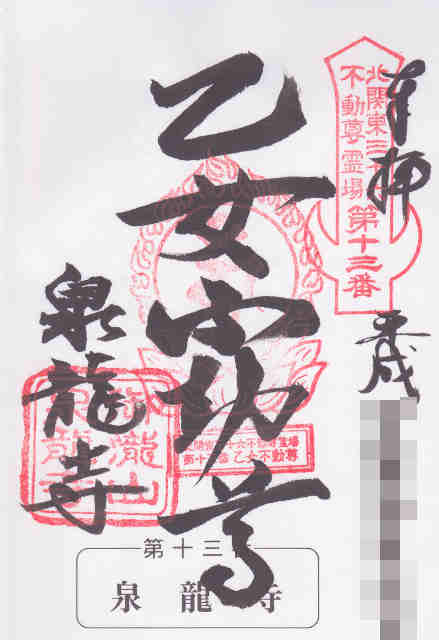 奉拝
平成
北関東三十六
不動尊霊場第十三番
乙女不動尊
北関東三十六不動尊霊場
第十三番 乙女不動尊
泉龍寺
第十三番
泉龍寺